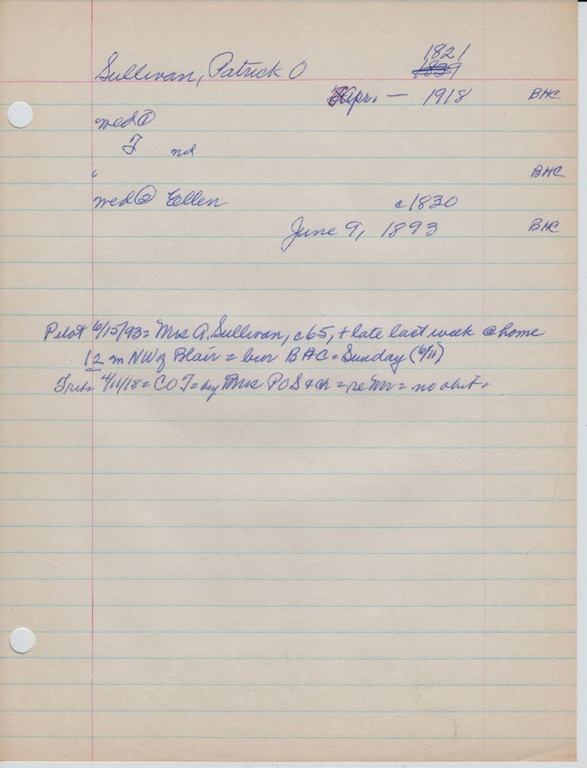 1821
Sullivan, Patrick O 1839
Apr. — 1918 BHC
wed①
nd
BHC
wed② Ellen c1830
June 9, 1893 BHC
Pilot 6/15/93 = Mrs A. Sullivan, c65, + late last week @ home
12 m NW of Blair = bur BHC = Sunday (6/11)
Trib = 4/11/18 = C O T = by Mrs P O S & ch = re Mr = no obit =